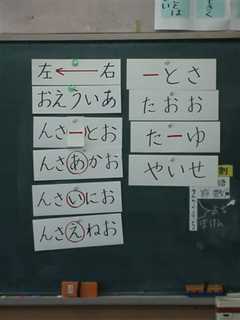 右←左
あいうえお
おとーさん
おかあさん
おにいさん
おねえさん
さとー
おおた
ゆーた
せいや
算数